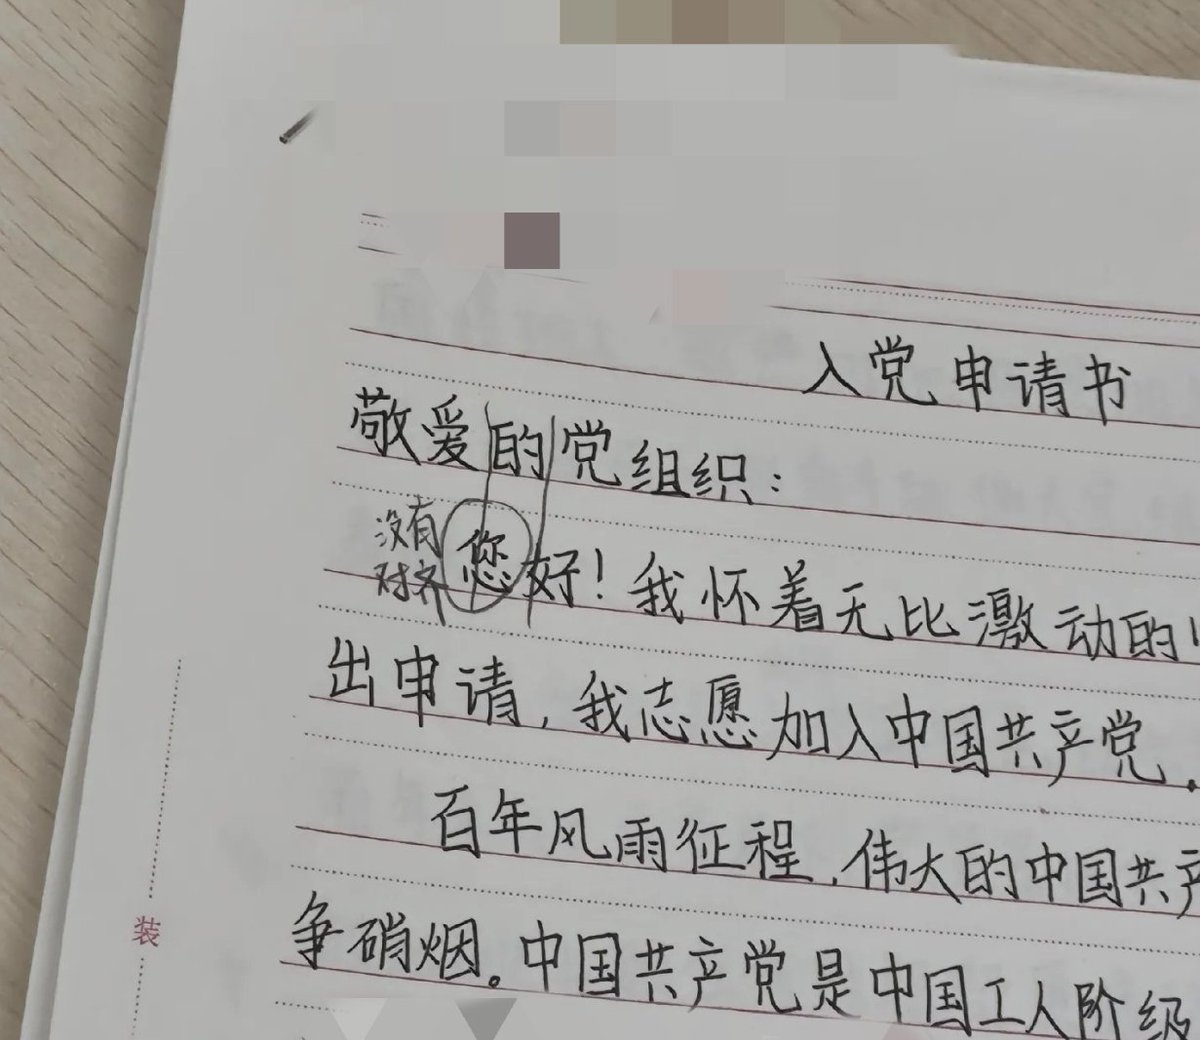 入党申请书
敬爱的党组织：
没有
对齐
您好！我怀着无比激动的
出申请，我志愿加入中国共产党。
百年风雨征程，伟大的中国共产
争硝烟。中国共产党是中国工人阶级
装